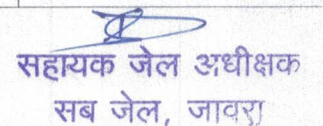 सहायक जेल अधीक्षक
सब जेल, जावरा